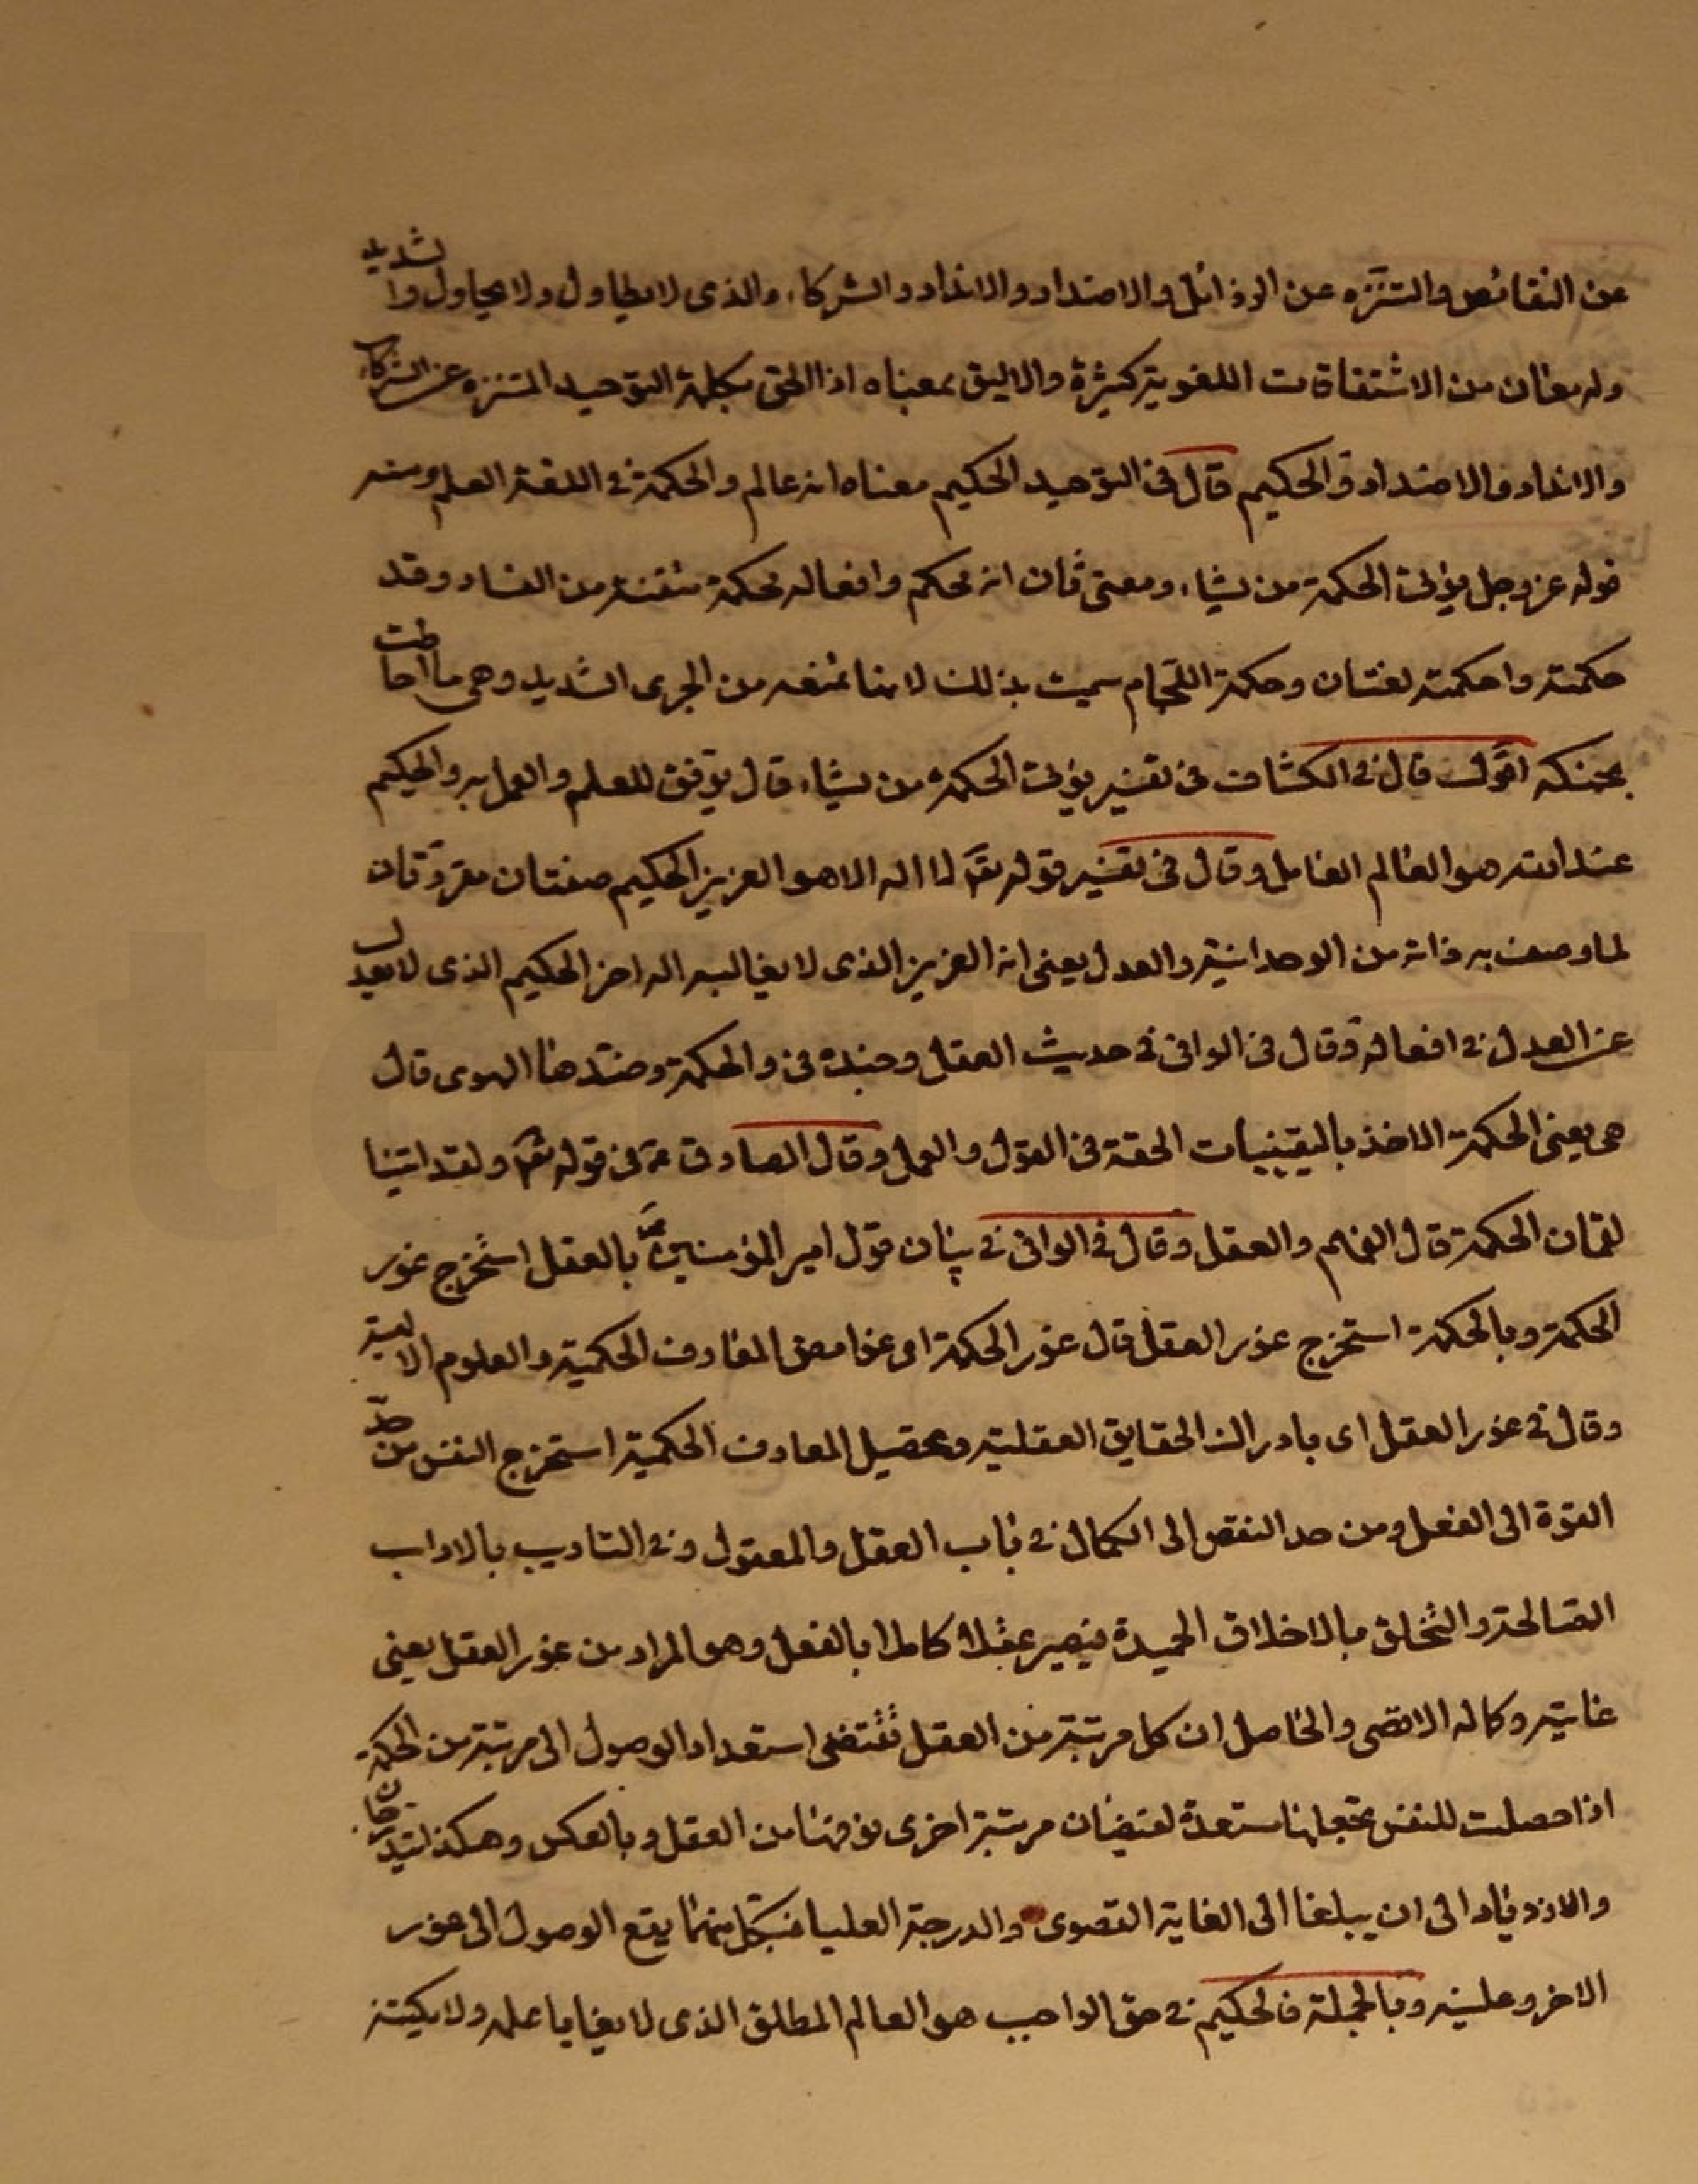 عن النقائص والتنزه عن الرذائل والاضداد والانداد والشركاء والذى لا يطاول ولا يحاول واشديد
وله معان من الاشتقاقات اللغوية كثيرة والاليق بمعناه اذا الحق بكلمة التوحيد المتنزه عن الشركاء
والانداد والاضداد والحكيم قال فى التوحيد الحكيم معناه انه عالم والحكمة فى اللغة العلم ومنه
قوله عز وجل يؤتى الحكمة من يشاء ومعنى ثان انه محكم وافعاله محكمة متقنة من الفساد وقد
حكمته واحكمته لغتان وحكمة اللجام سميت بذلك لانها تمنعه من الجرى الشديد وهى ما احاطت
بحنكه اقول قال فى الكشاف فى تفسير يؤتى الحكمة من يشاء قال يوفق للعلم والعمل به والحكيم
عند الله هو العالم العامل وقال فى تفسير قوله تعالى لا اله الا هو العزيز الحكيم صفتان مقررتان
لما وصف به ذاته من الوحدانية والعدل يعنى انه العزيز الذى لا يغالبه اله اخر الحكيم الذى لا يعدل
عن العدل فى افعاله وقال فى الوافى فى حديث العقل وجنده فى والحكمة وضدها الهوى قال
هى يعنى الحكمة الاخذ باليقينيات الحقة فى القول والعمل وقال الصادق ع فى قوله تعالى ولقد اتينا
لقمان الحكمة قال الفهم والعقل وقال فى الوافى فى بيان قول امير المؤمنين ع بالعقل استخرج غور
الحكمة وبالحكمة استخرج غور العقل قال غور الحكمة اى غوامض المعارف الحكمية والعلوم الالهية
وقال فى غور العقل اى بادراك الحقايق العقلية وتحصيل المعارف الحكمية استخرج النفس من حد
القوة الى الفعل ومن حد النقص الى الكمال فى باب العقل والمعقول وفى التاديب بالاداب
الصالحة والتخلق بالاخلاق الحميدة فيصير عقلا كاملا بالفعل وهو المراد من غور العقل يعنى
غايته وكماله الاقصى والحاصل ان كل مرتبة من العقل تقتضى استعداد الوصول الى مرتبة من الحكمة
اذا حصلت للنفس تجعلها مستعدة لفيضان مرتبة اخرى فوقها من العقل وبالعكس وهكذا يتدرجان
والازدياد الى ان يبلغا الى الغاية القصوى والدرجة العليا فبكل منهما يقع الوصول الى غور
الاخر وعليه وبالجملة فالحكيم فى حق الواجب هو العالم المطلق الذى لا يغايا علمه ولا يكيته